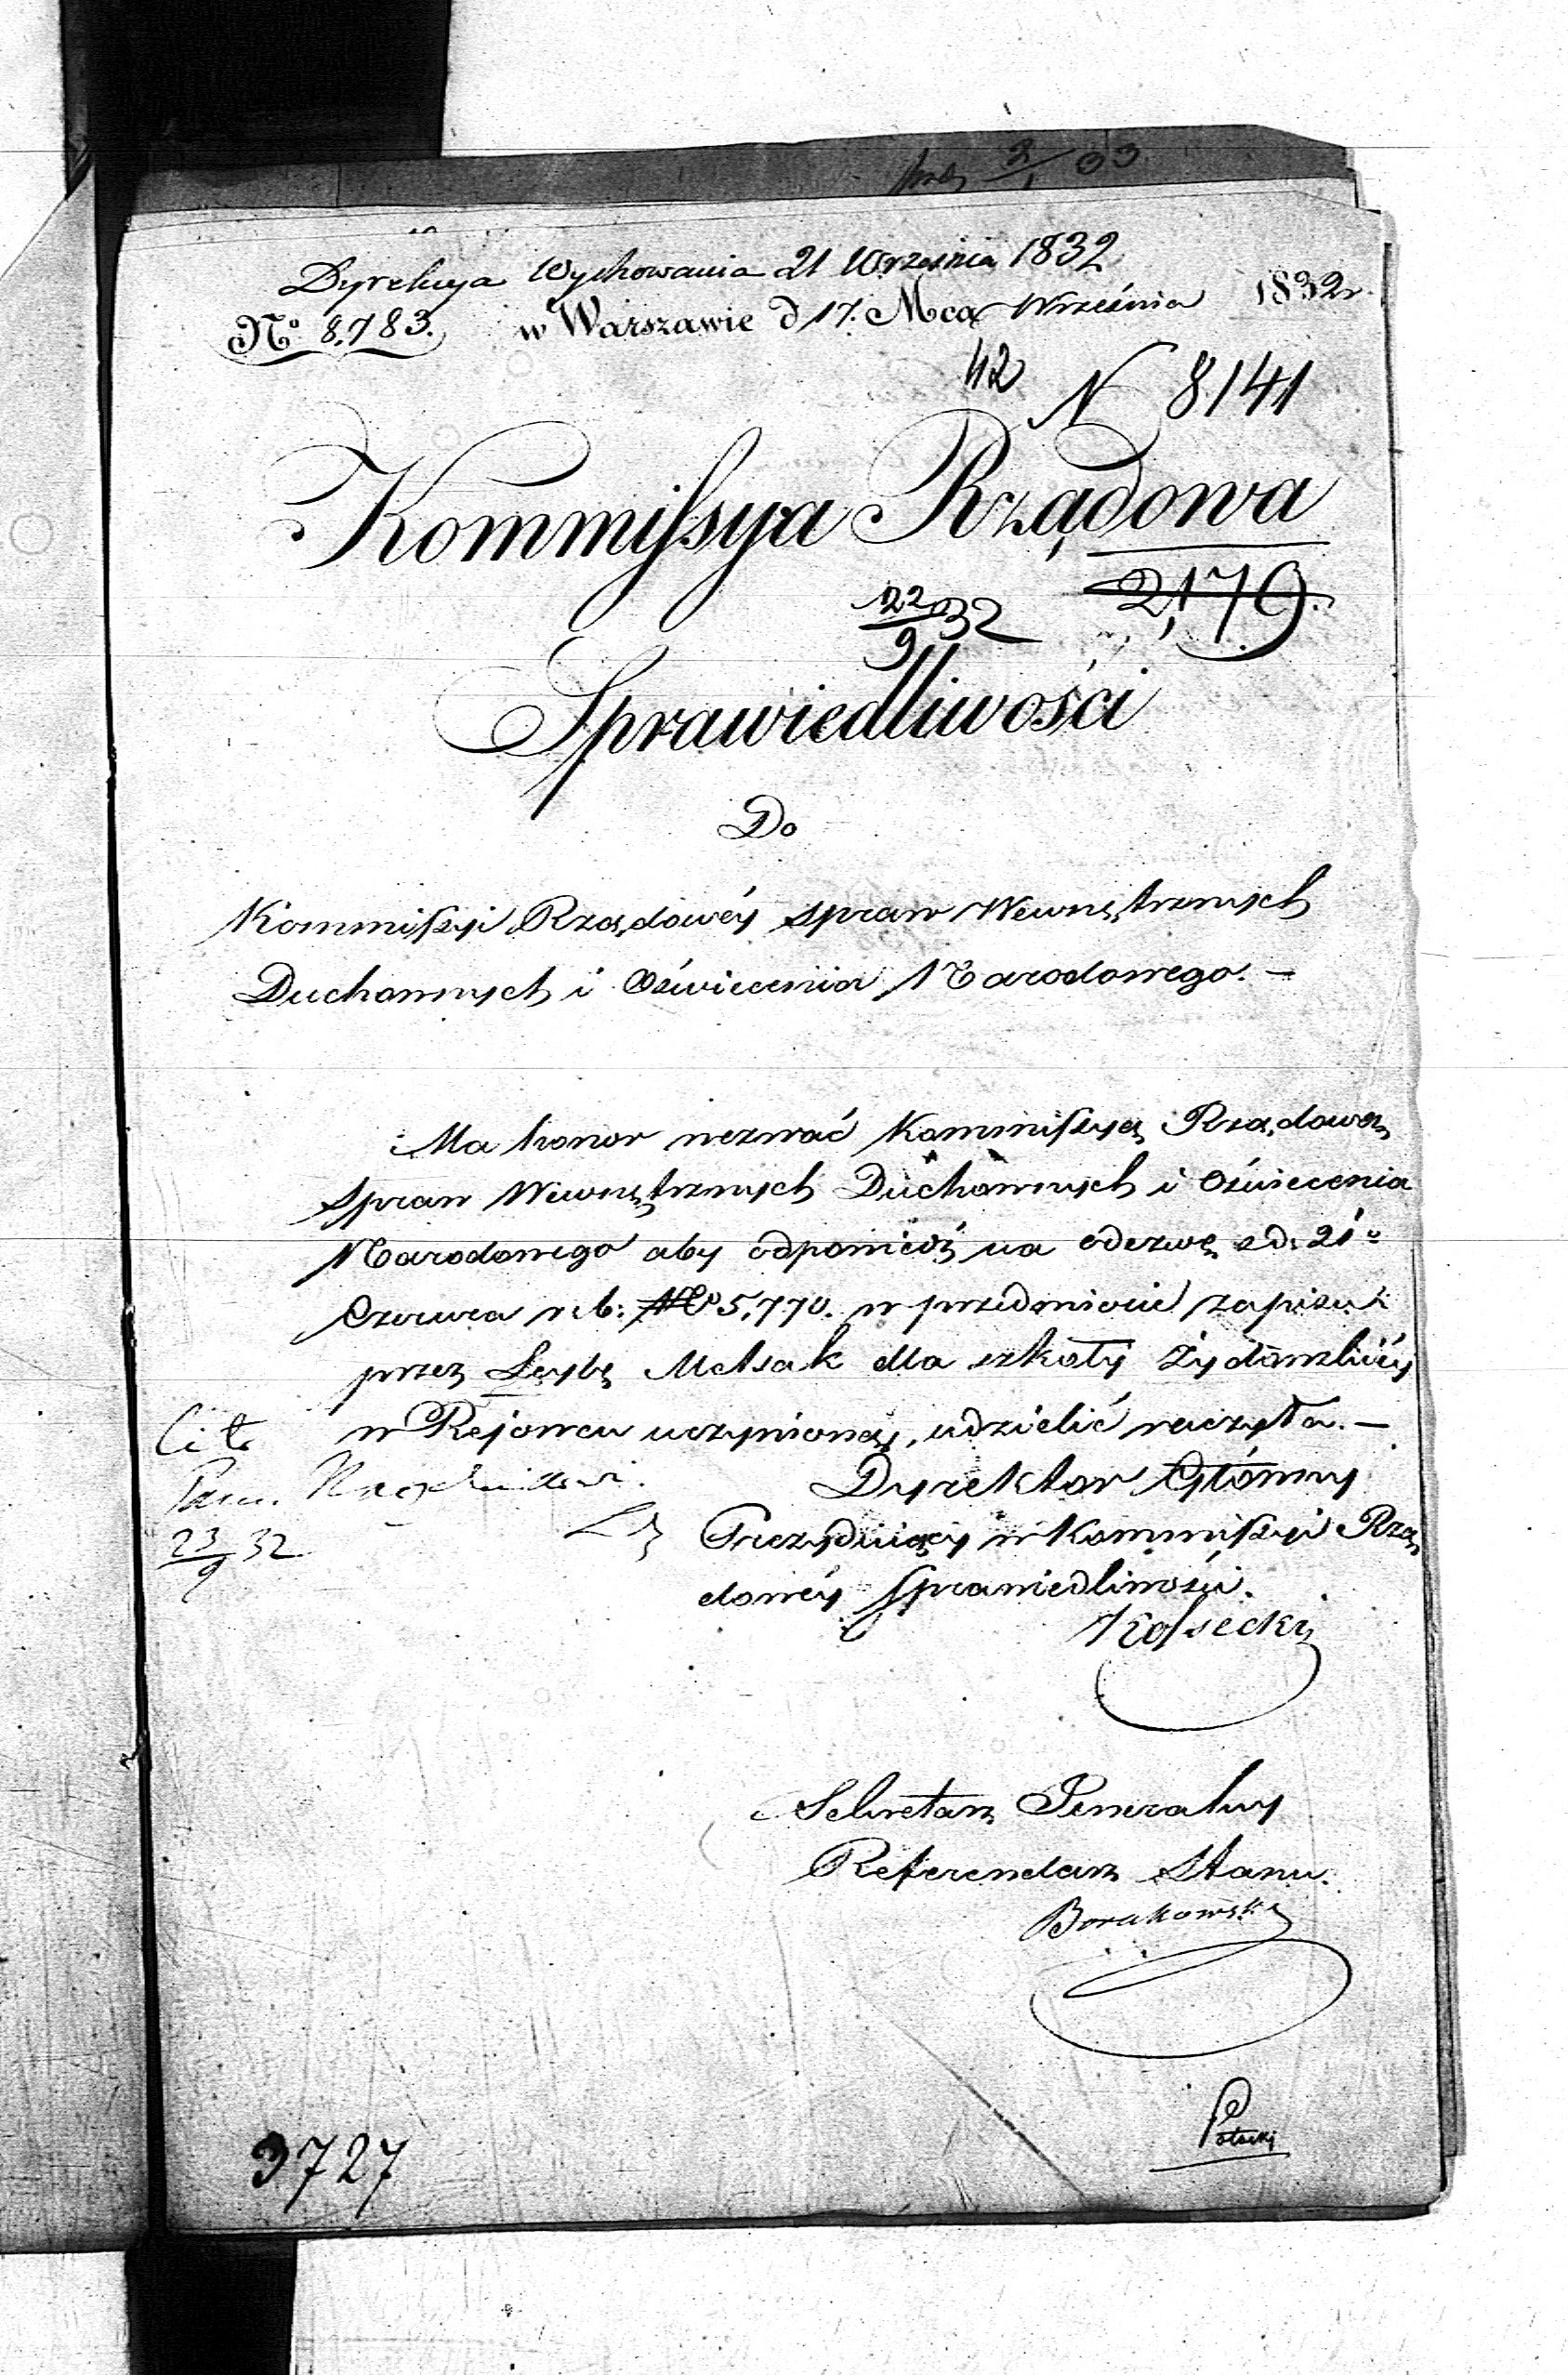 Dyrekcya Wychowania 21 Września 1832
No 8,783. w Warszawie d 17. Mca Września 1832 r.
42 N 8141
Kommissya Rządowa
22/9 32 2,179.
Sprawiedliwości
Do
Kommissyi Rządowéy spraw Wewnętrznych
Duchownych i Oświecenia Narodowego. —
Ma honor wezwać Kommissyą Rządową
spraw Wewnętrznych Duchownych i Oświecenia
Narodowego aby odpowiedź na odezwę z d. 21o
Czerwca r. b: No 5,770. w przedmiocie zapisu
przez Leybę Melsak dla szkoły Żydowskiéy
w Rejowcu uczynioney, udzielić raczyła. —
Cito
Dyrektor Główny
Panu
23/9 32
Prezyduiący w Kommissyi Rzą
dowéy Sprawiedliwości.
Kossecki
Sekretarz Generalny
Referendarz Stanu.
Borakowski
Potocki
3727